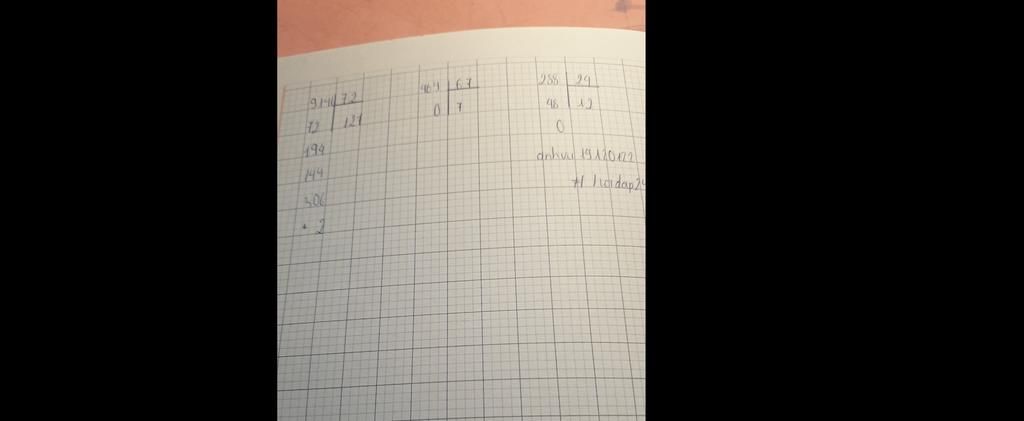 9146 72
72 127
194
144
506
2
469 67
0 7
288 24
48 12
0
anhvu 19120122
# hoidap24